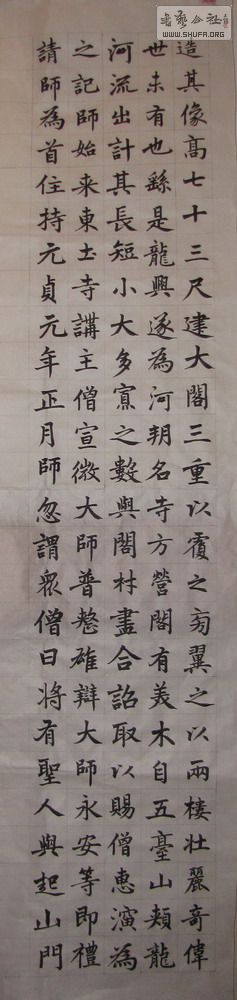 書藝公社
WWW.SHUFA.ORG
造其像高七十三尺建大閣三重以覆之旁翼之以兩樓壯麗奇偉
世未有也繇是龍興遂為河朔名寺方營閣有美木自五臺山頰龍
河流出計其長短小大多寡之數與閣材盡合詔取以賜僧惠演為
之記師始来東土寺講主僧宣微大師普整雄辯大師永安等即禮
請師為首住持元貞元年正月師忽謂眾僧曰将有聖人興起山門